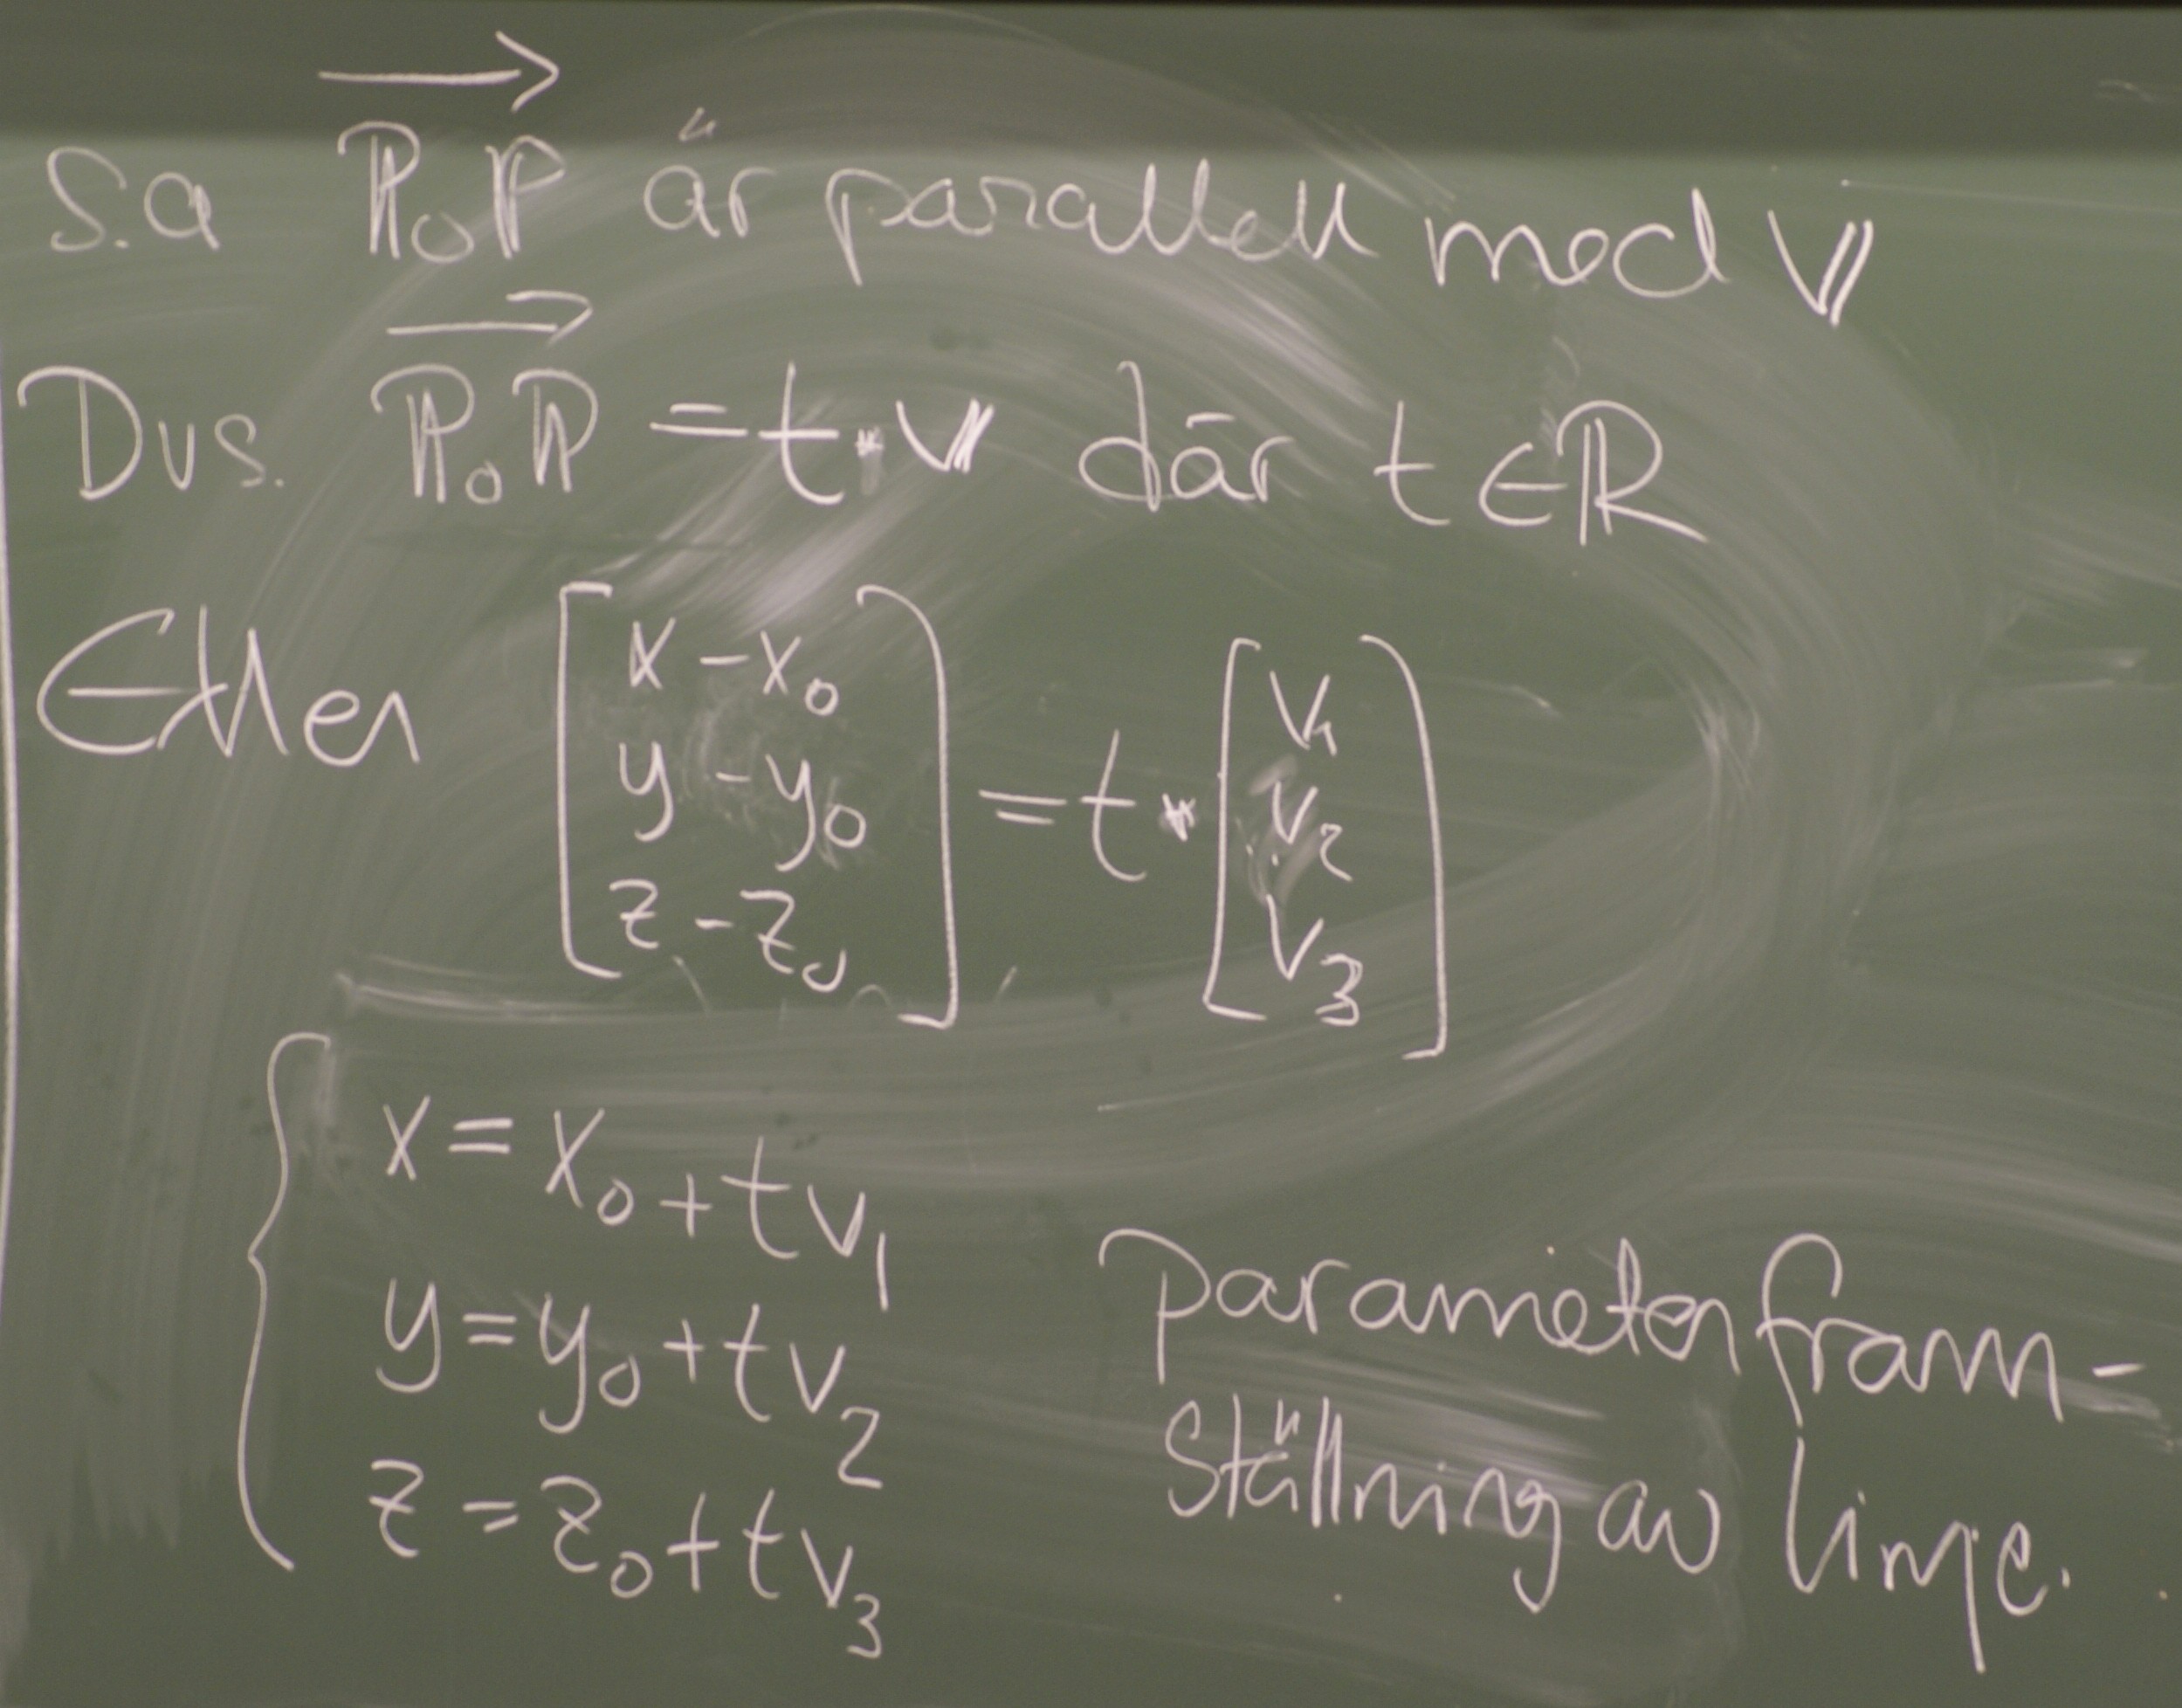 S.a $\overrightarrow{P_0P}$ är parallell med $\mathbb{v}$
Dvs. $\overrightarrow{P_0P} = t \cdot \mathbb{v}$ där $t \in \mathbb{R}$
Eller $\begin{bmatrix} x - x_0 \\ y - y_0 \\ z - z_0 \end{bmatrix} = t \cdot \begin{bmatrix} v_1 \\ v_2 \\ v_3 \end{bmatrix}$
x = x₀ + tv₁
y = y₀ + tv₂
z = z₀ + tv₃
Parameterfram-
ställning av linje.